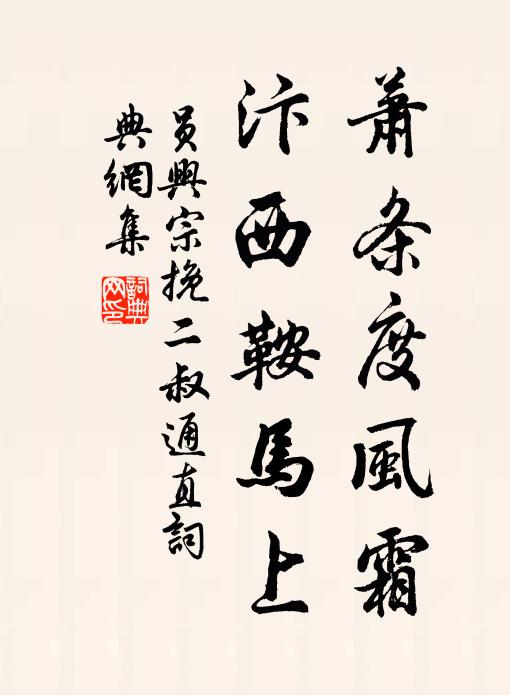 萧条度風霜
汴西鞍馬上
员興宗挽二叔通直詞
典網集
詞典网印